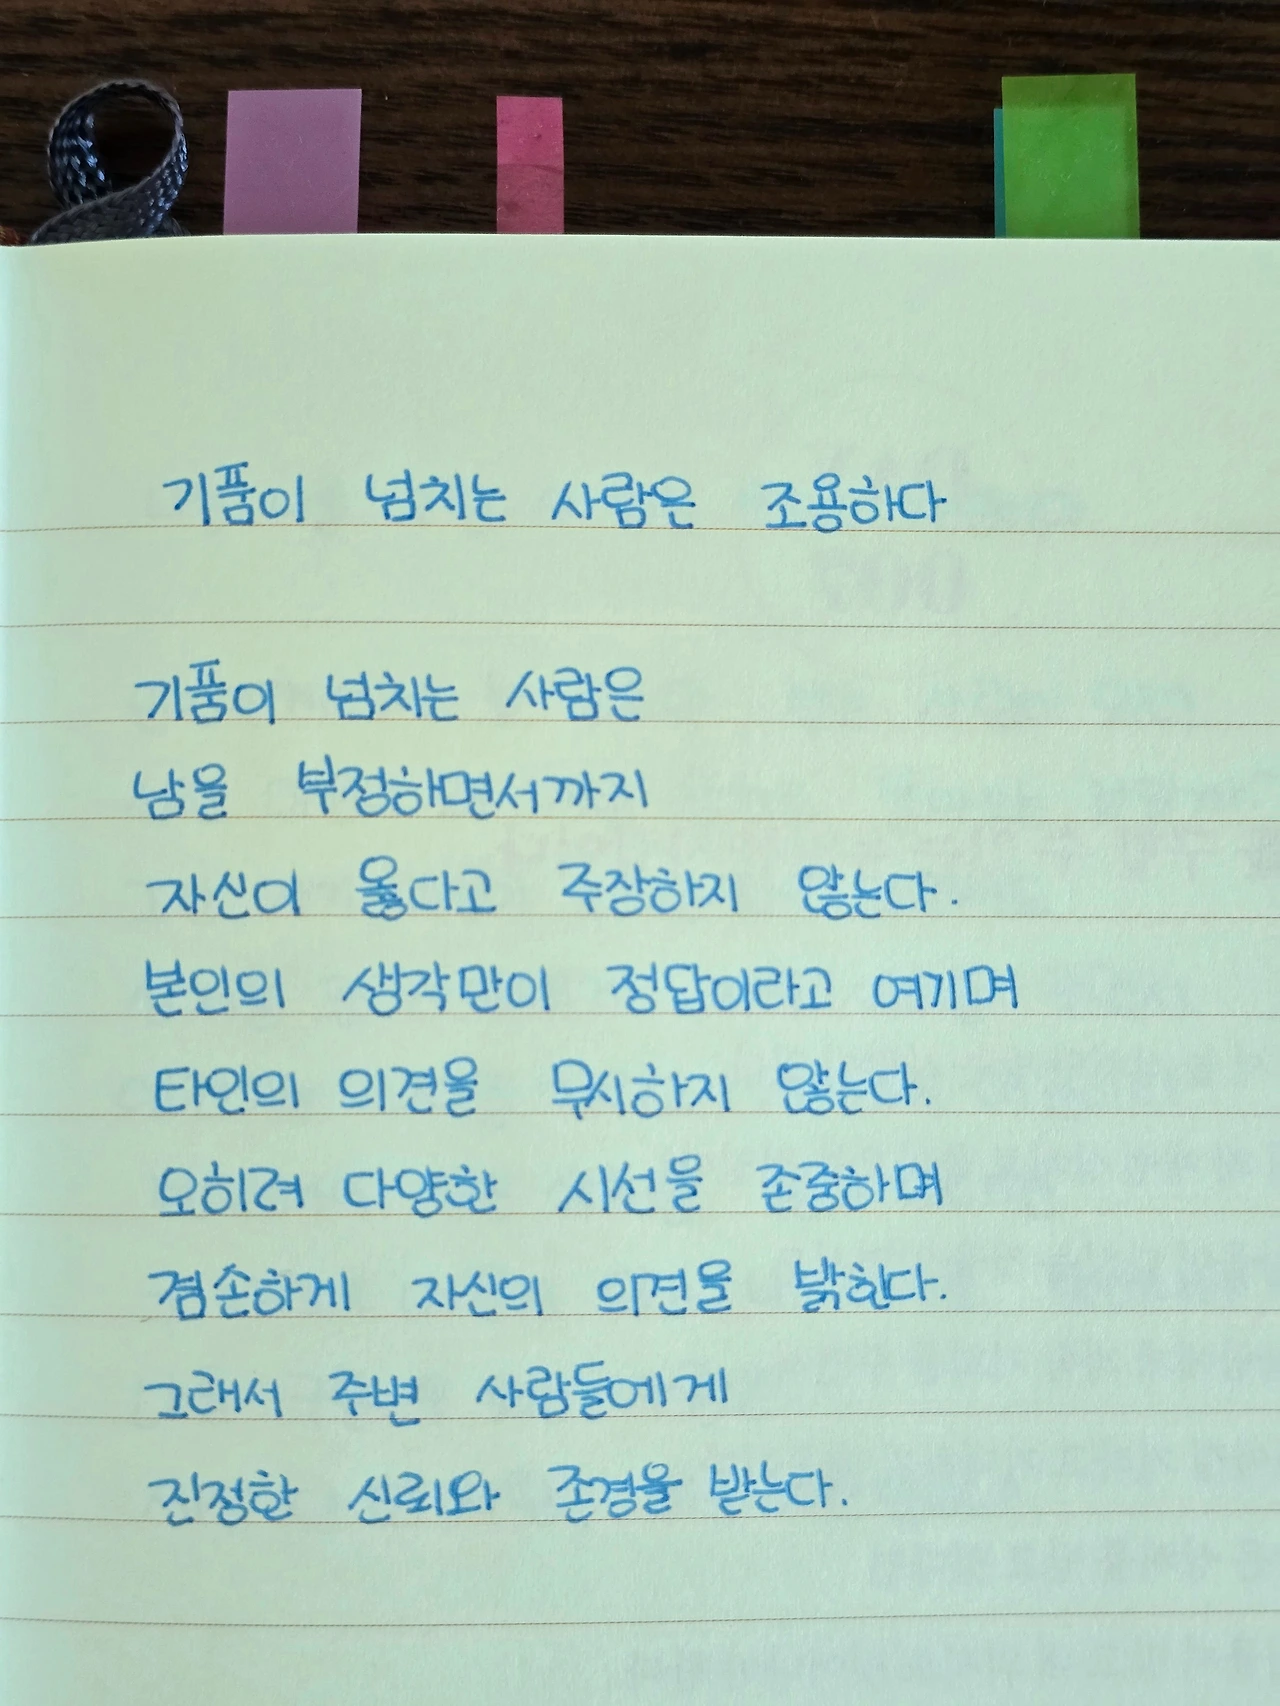 기품이 넘치는 사람은 조용하다
기품이 넘치는 사람은
남을 부정하면서까지
자신이 옳다고 주장하지 않는다.
본인의 생각만이 정답이라고 여기며
타인의 의견을 무시하지 않는다.
오히려 다양한 시선을 존중하며
겸손하게 자신의 의견을 밝힌다.
그래서 주변 사람들에게
진정한 신뢰와 존경을 받는다.